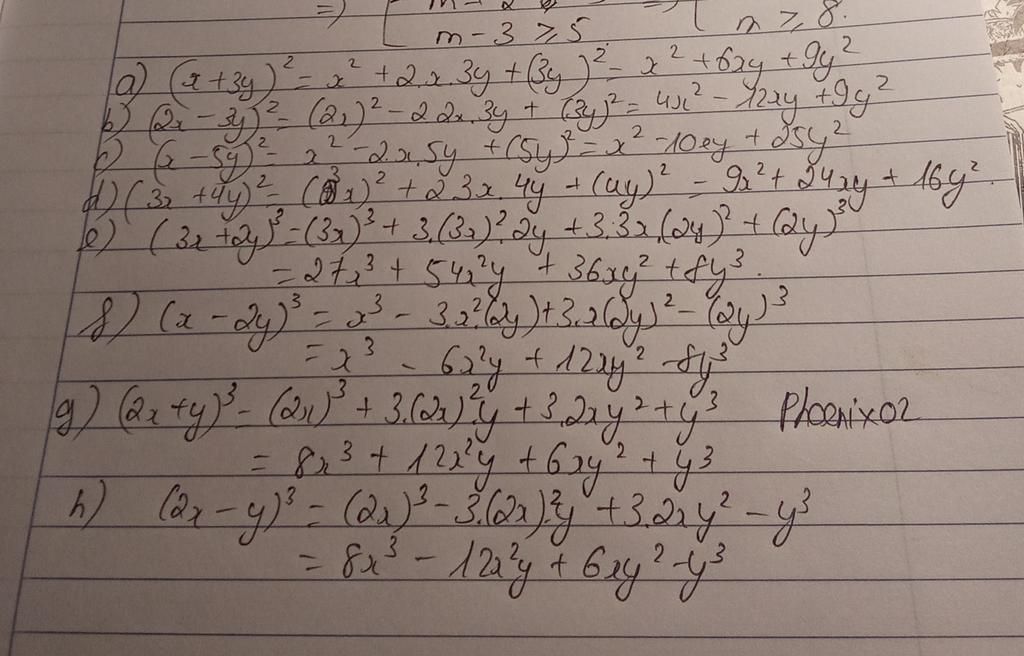 => m - 2 =>
m - 3 ≥ 5 m ≥ 8.
a) (x + 3y)² = x² + 2.x.3y + (3y)² = x² + 6xy + 9y²
b) (2x - 3y)² = (2x)² - 2.2x.3y + (3y)² = 4x² - 12xy + 9y²
c) (x - 5y)² = x² - 2.x.5y + (5y)² = x² - 10xy + 25y²
d) (3x + 4y)² = (3x)² + 2.3x.4y + (4y)² = 9x² + 24xy + 16y².
e) (3x + 2y)³ = (3x)³ + 3.(3x)².2y + 3.3x.(2y)² + (2y)³
= 27x³ + 54x²y + 36xy² + 8y³.
f) (x - 2y)³ = x³ - 3.x².(2y) + 3.x(2y)² - (2y)³
= x³ - 6x²y + 12xy² - 8y³
g) (2x + y)³ = (2x)³ + 3.(2x)².y + 3.2xy² + y³ Phoenix02
= 8x³ + 12x²y + 6xy² + y³
h) (2x - y)³ = (2x)³ - 3.(2x)².y + 3.2xy² - y³
= 8x³ - 12x²y + 6xy² - y³